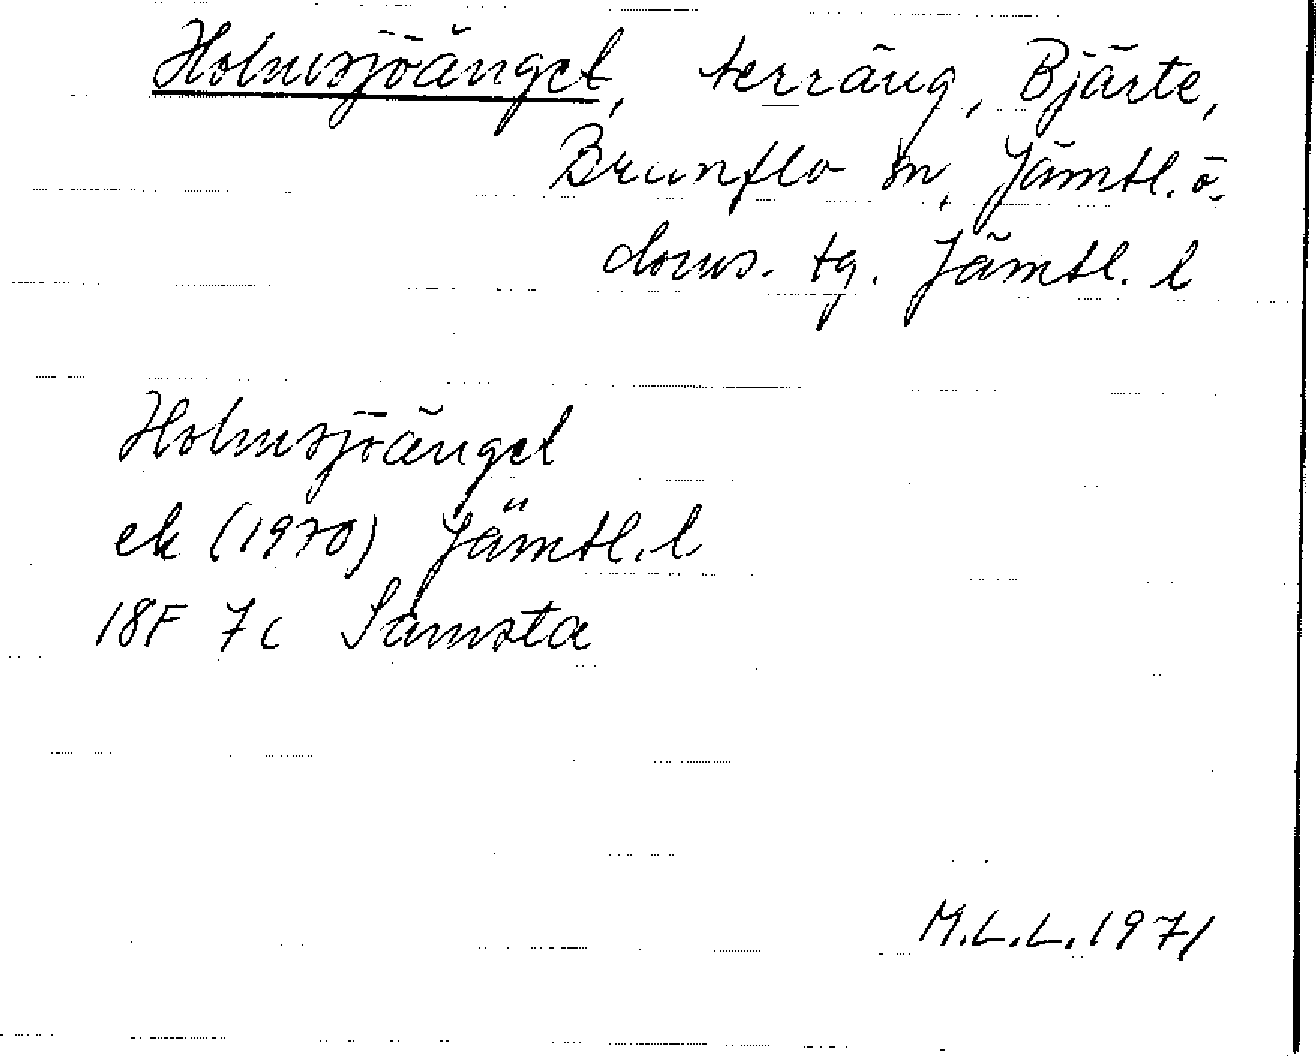 Holmsjöänget, terräng, Bjärte,
Brunflo sn, Jämtl. ö.
doms. tg. Jämtl. l
Holmsjöänget
ek (1970) Jämtl. l
18F 7c Såmsta
M.L.L. 1971